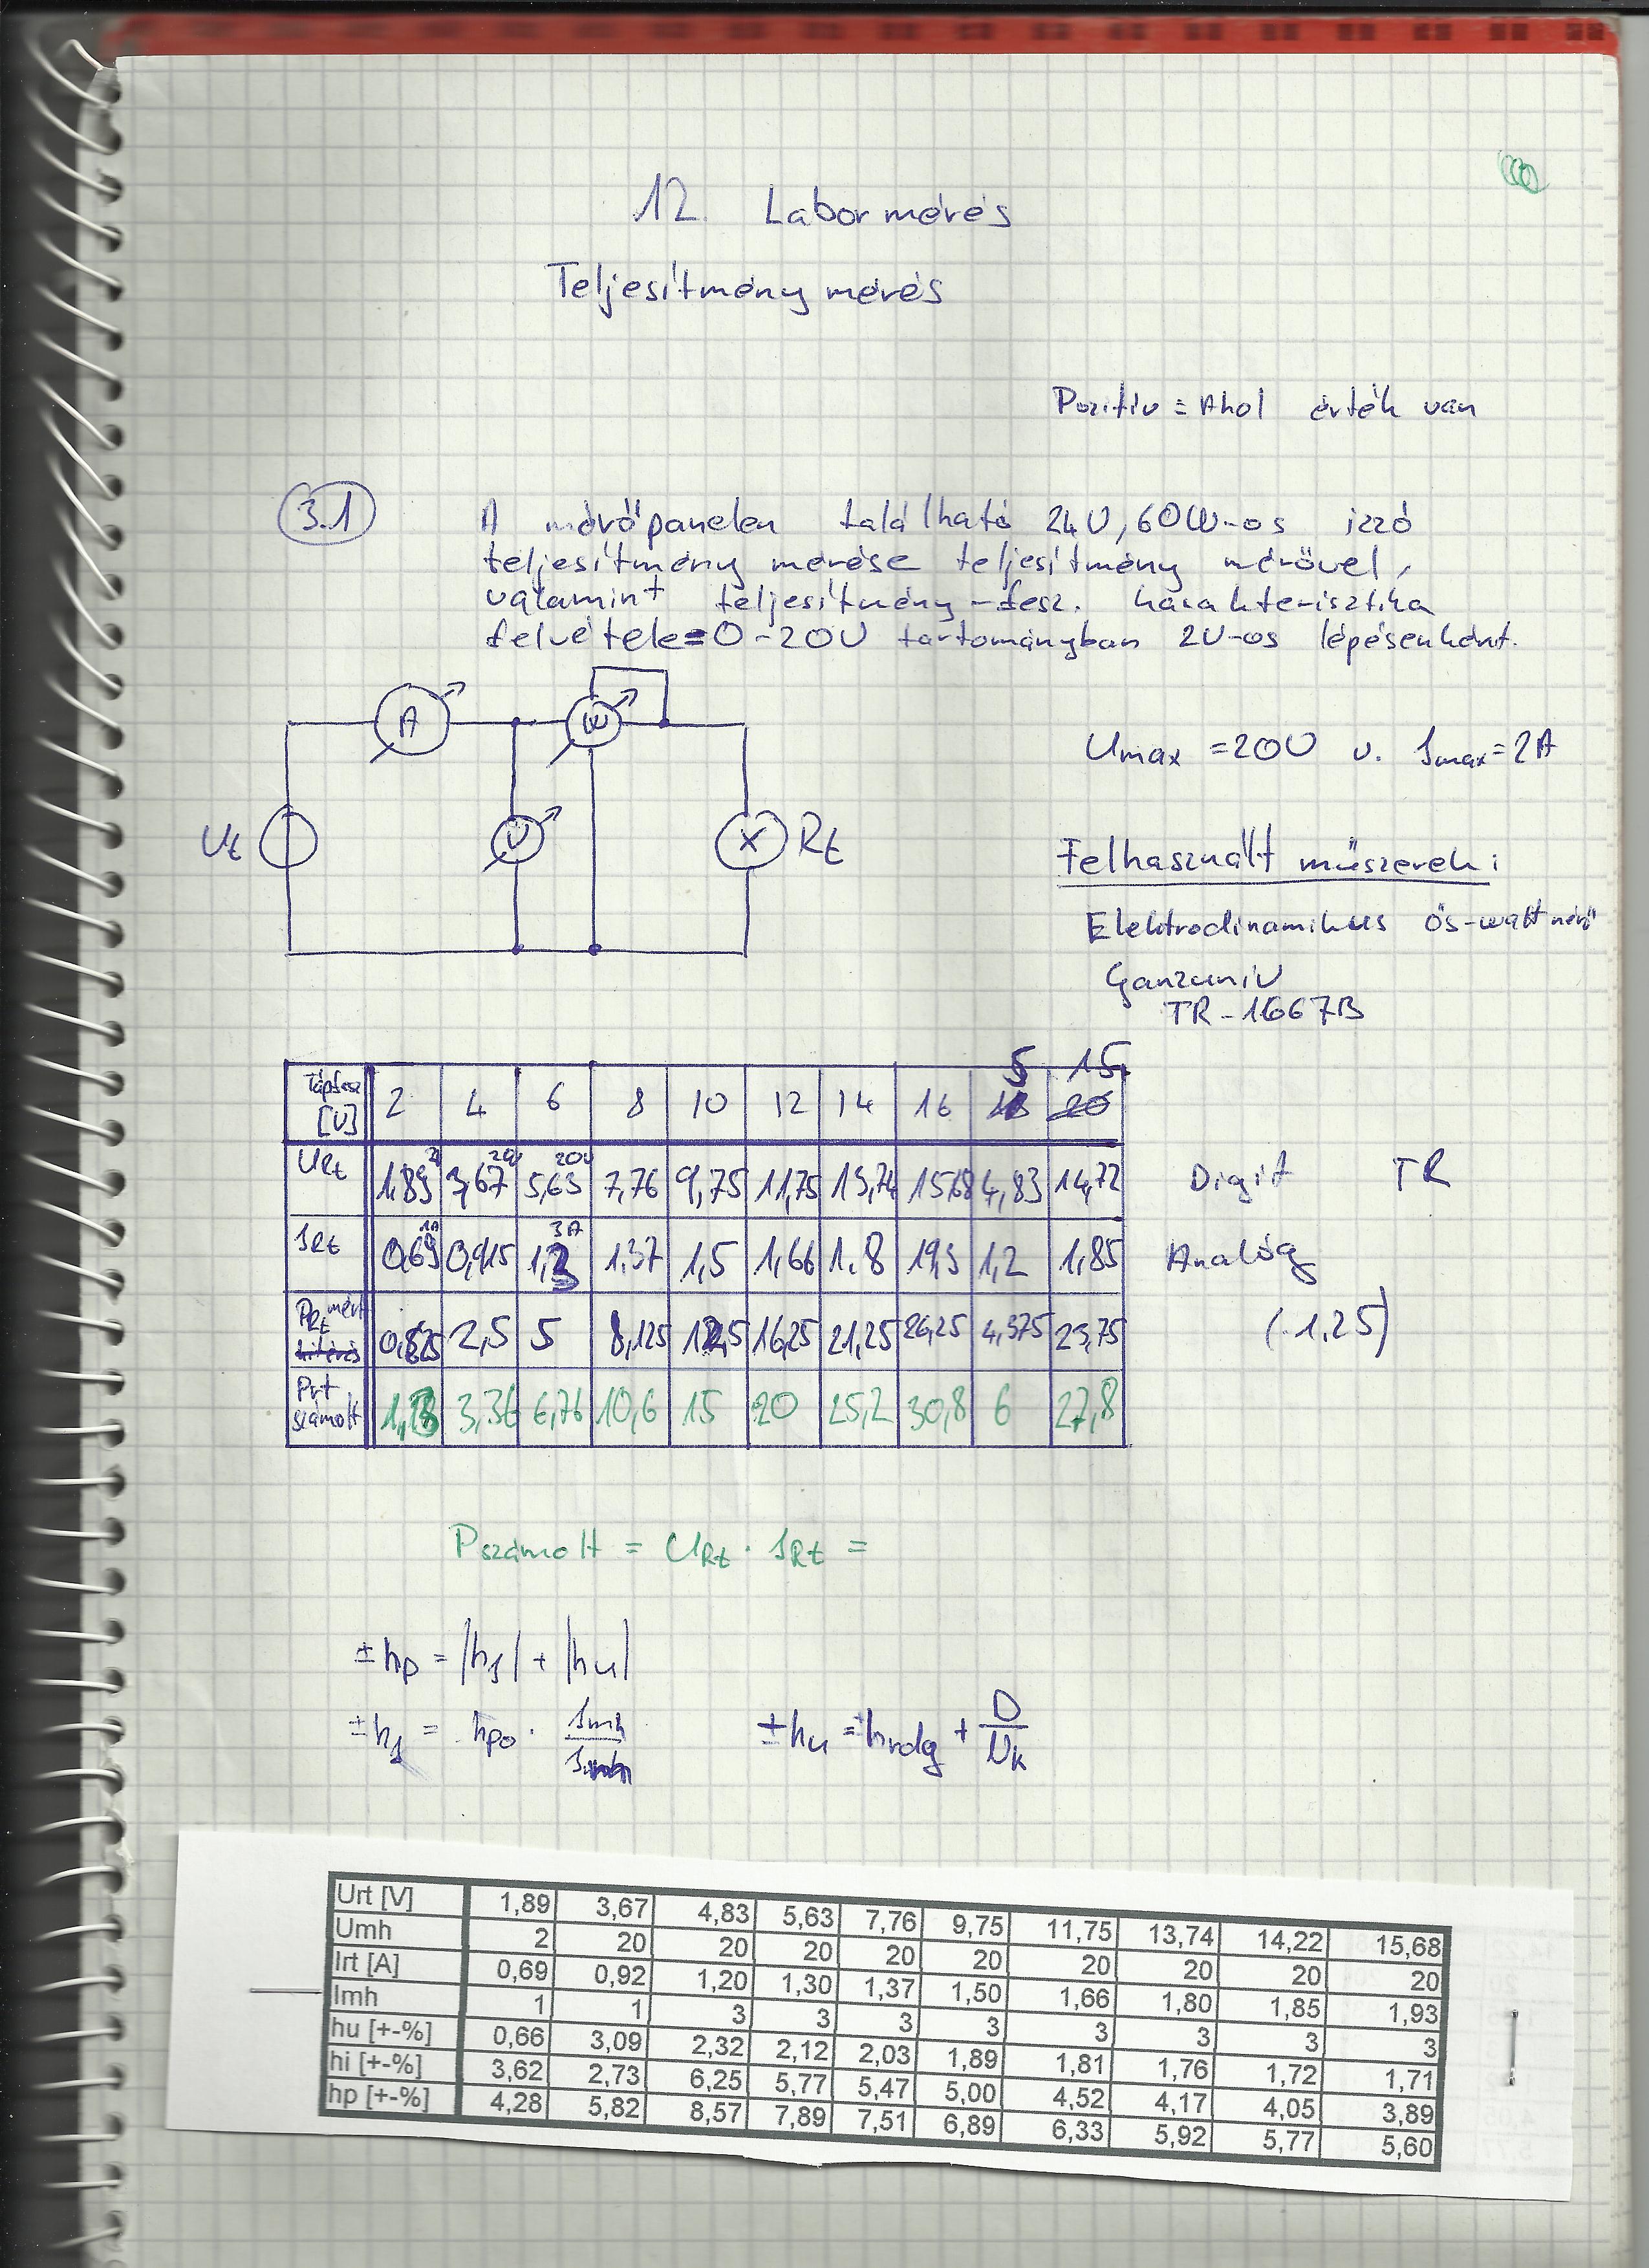 12. Labor mérés
Teljesítmény mérés
Pozitív = Ahol érték van
3.1
A mérőpanelen található 24V, 60W-os izzó
teljesítmény mérése teljesítmény mérővel,
valamint teljesítmény-fesz. karakterisztika
felvétele=0-20V tartományban 2V-os lépésenként.
A W
Ut V X Rt
Umax = 20V v. Imax = 2A
Felhasznált műszerek:
Elektrodinamikus ős-wattmérő
Ganzuniv
TR-1667B
5 15
Tápfesz [V] 2 4 6 8 10 12 14 16 20
2 20 20V
URt 1,89 3,67 5,63 7,76 9,75 11,75 13,74 15,68 4,83 14,72 Digit TR
1A 3A
IRt 0,69 0,915 1,3 1,37 1,5 1,66 1,8 19,3 1,2 1,85 Analóg
PRt mért 2,5 5 8,125 12,5 16,25 21,25 26,25 4,375 23,75 (·1,25)
Prt számolt 3,36 6,76 10,6 15 20 25,2 30,8 6 27,8
Pszámolt = URt · IRt =
±hp = |hI| + |hu|
±hI = hpo · Imh
±hu = ±hrdg + D/Nk
Urt [V] 1,89 3,67 4,83 5,63 7,76 9,75 11,75 13,74 14,22 15,68
Umh 2 20 20 20 20 20 20 20 20 20
Irt [A] 0,69 0,92 1,20 1,30 1,37 1,50 1,66 1,80 1,85 1,93
Imh 1 1 3 3 3 3 3 3 3 3
hu [+-%] 0,66 3,09 2,32 2,12 2,03 1,89 1,81 1,76 1,72 1,71
hi [+-%] 3,62 2,73 6,25 5,77 5,47 5,00 4,52 4,17 4,05 3,89
hp [+-%] 4,28 5,82 8,57 7,89 7,51 6,89 6,33 5,92 5,77 5,60